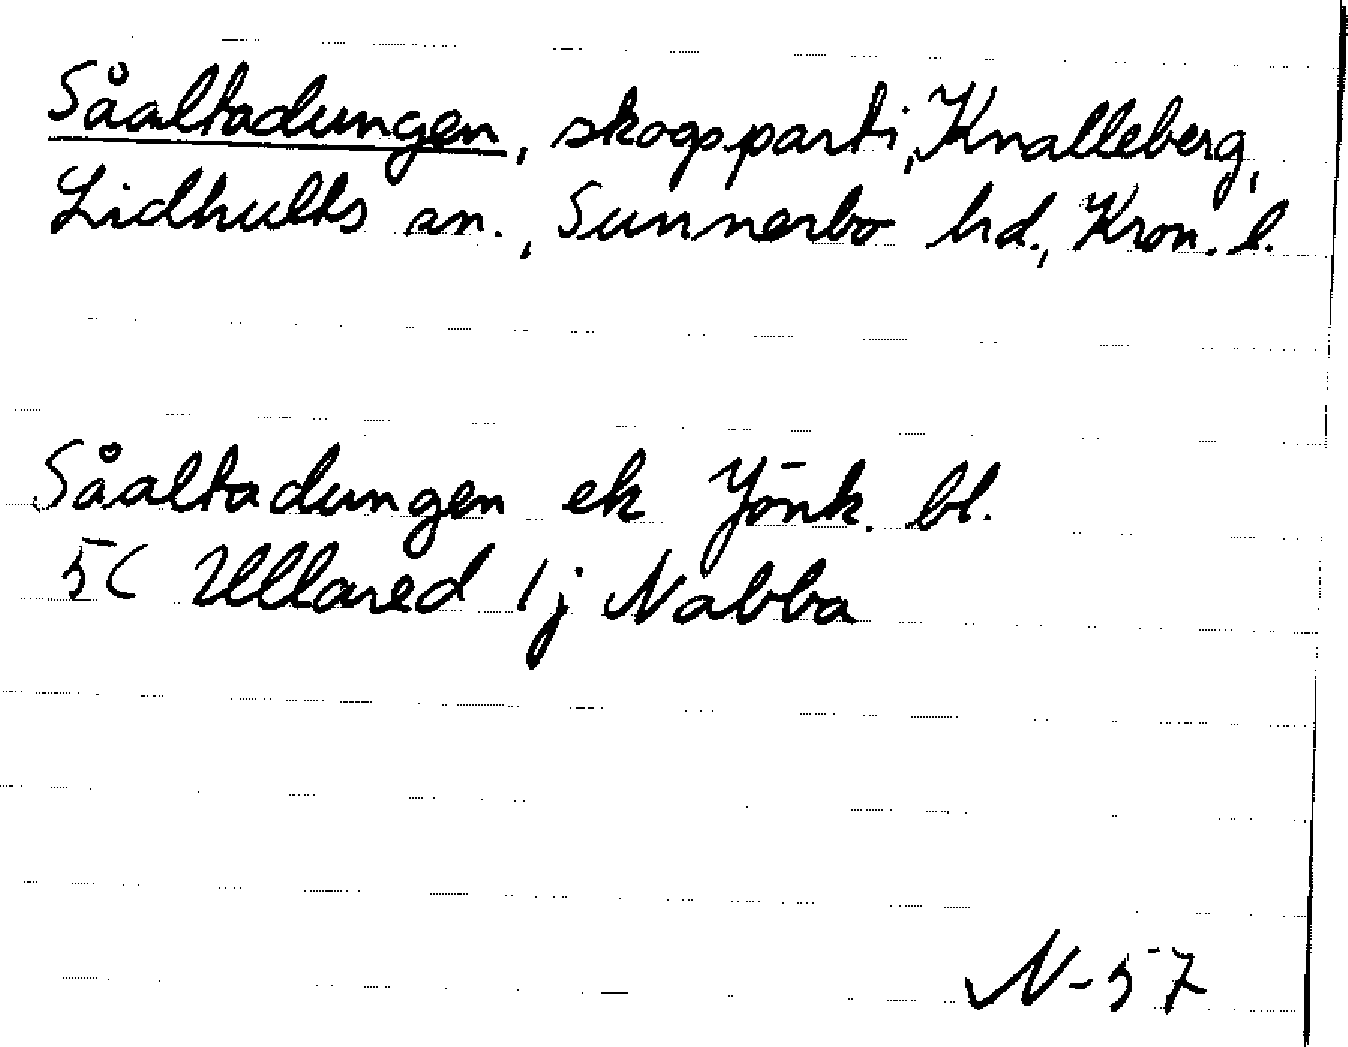 Såaltadungen, skogsparti, Knalleberg,
Lidhults sn., Sunnerbo hd., Kron. l.
Såaltadungen ek Jönk. bl.
5C Ullared 1j Nabba
N-57